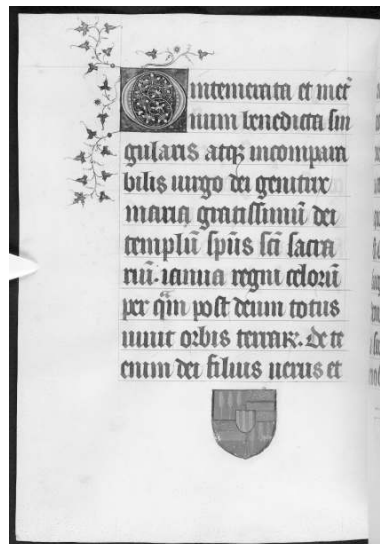 O intemerata et inet̄
num benedicta sin
gularis atq; incompara
bilis uirgo dei genitrix
maria gratissimū dei
templū sp̄us sc̄i sacra
riū. ianua regni celorū
per q̄m post deum totus
uiuit orbis terraꝝ. de te
enim dei filius uerus et